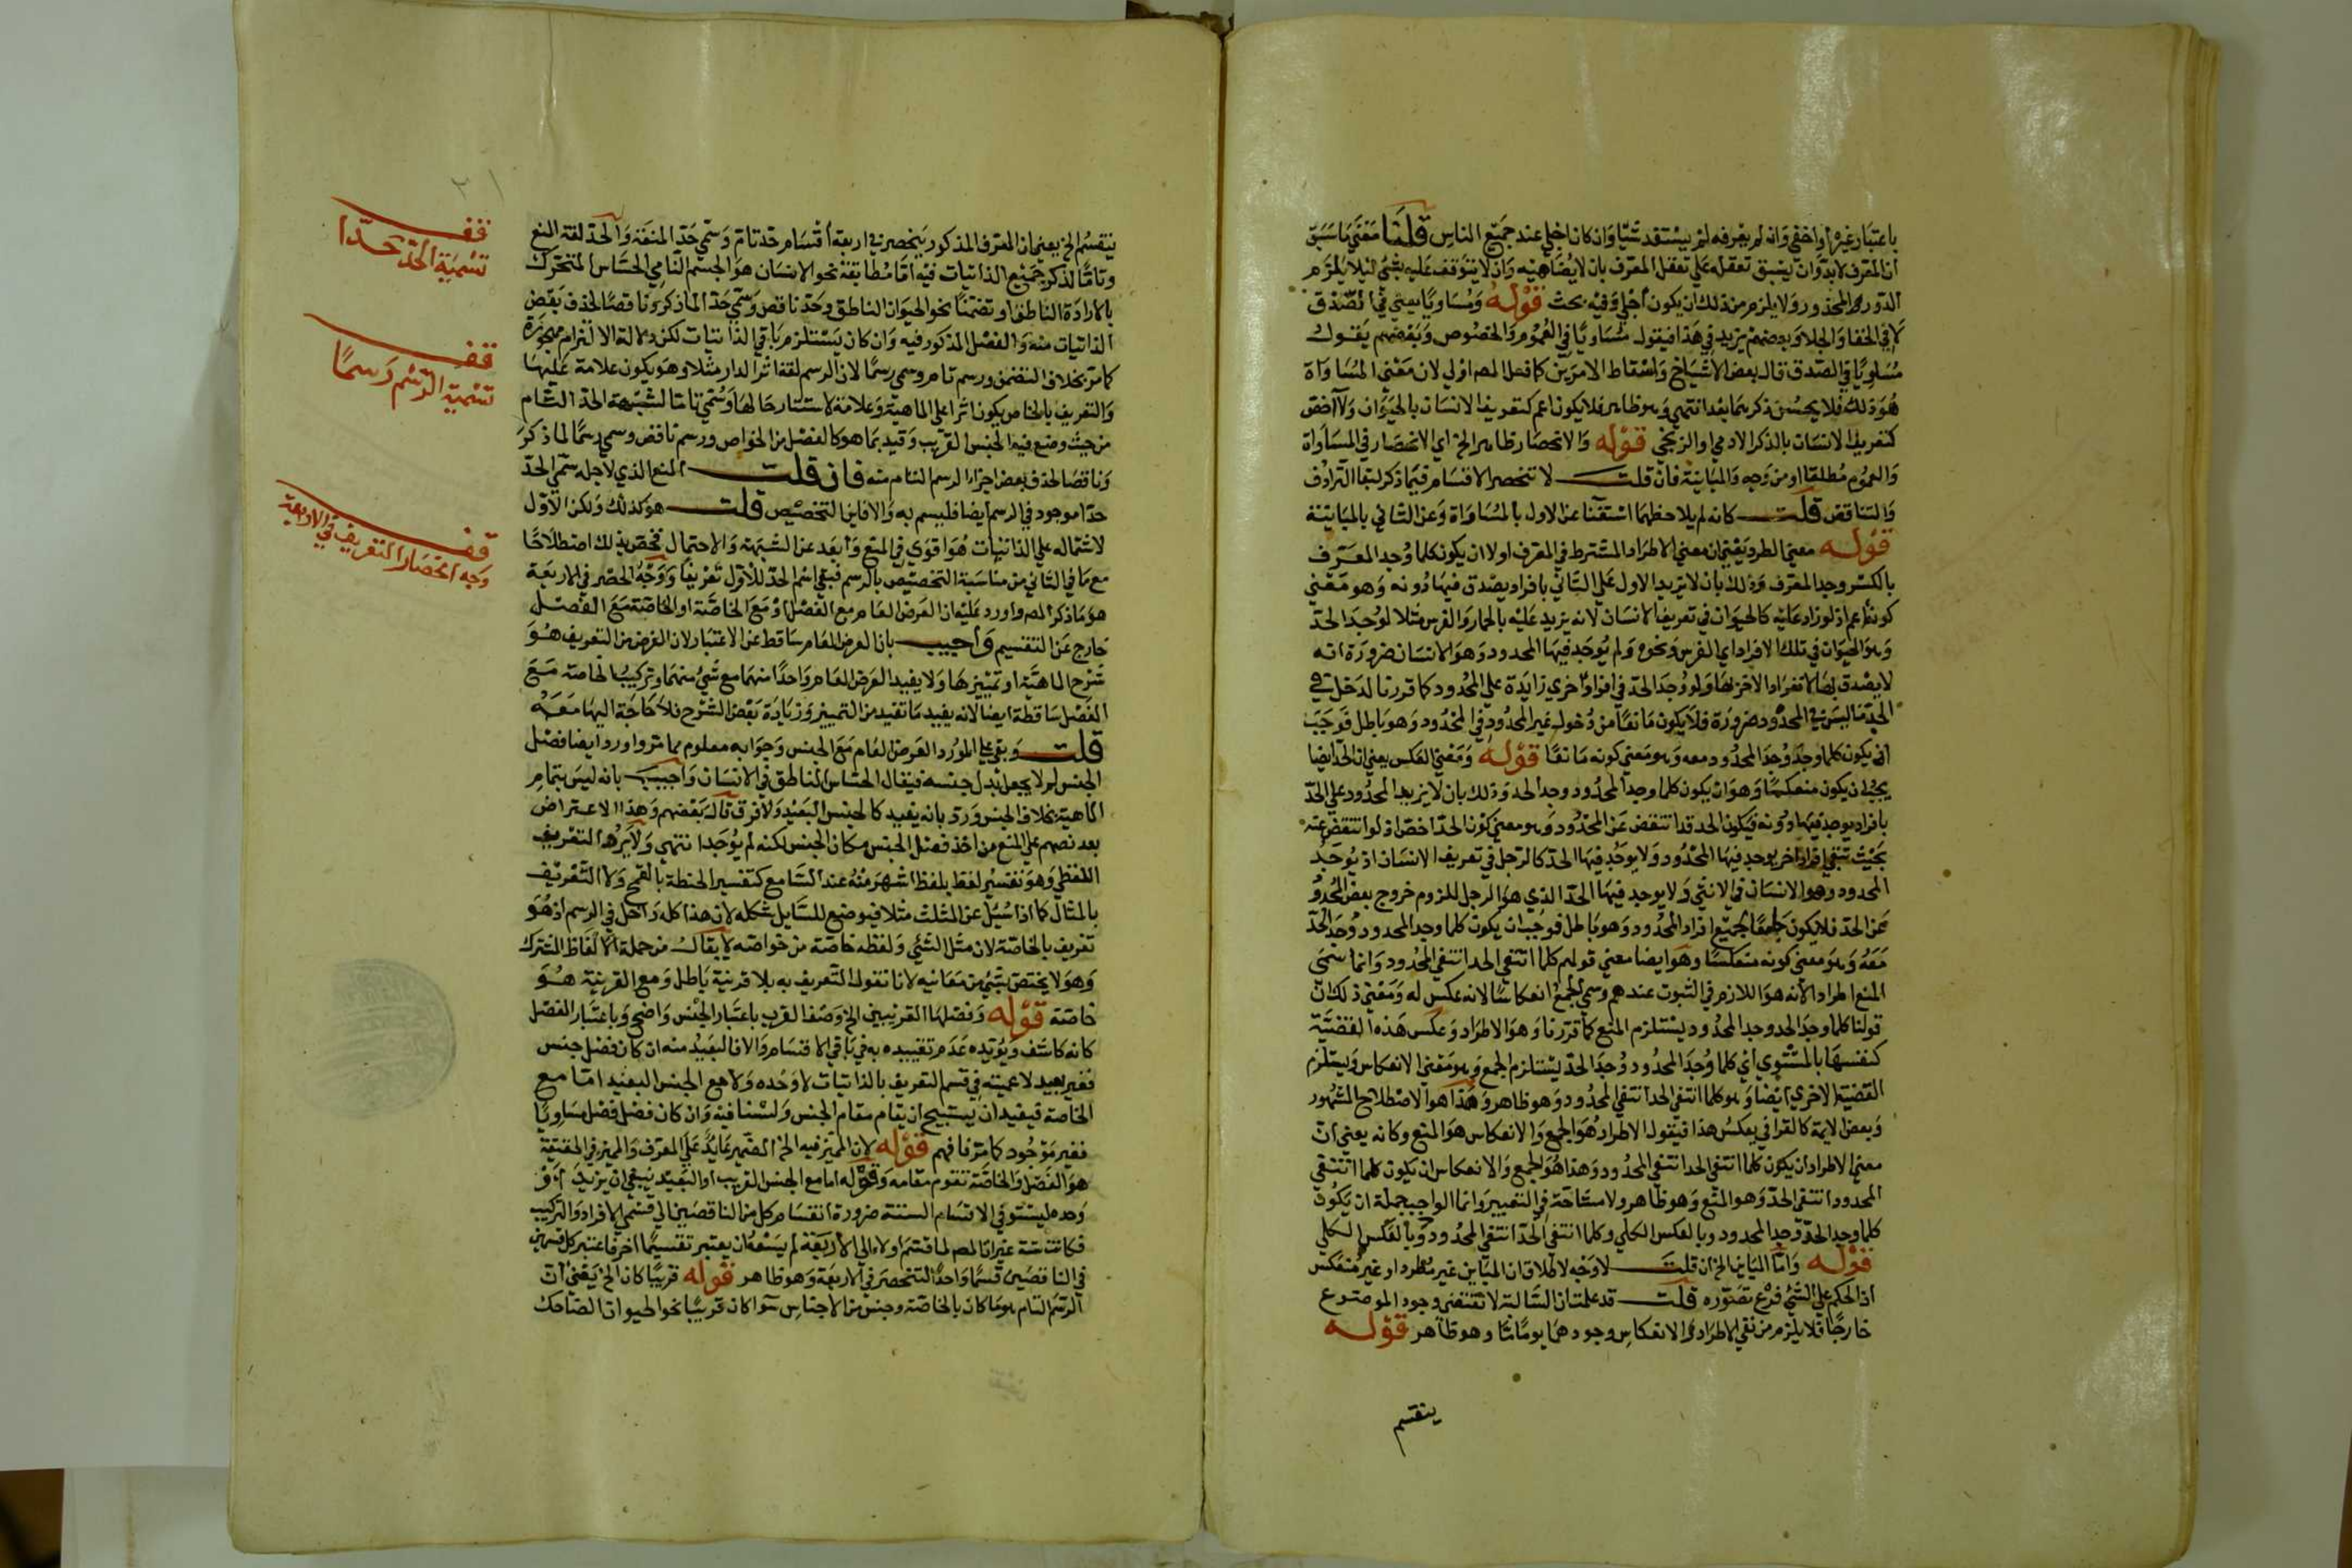 باعتبار غيره او اخفى وانه لم يعرفه لم يستفد شيا وان كان اجلى عند جميع الناس قلنا مقتضى ما سبق
ان المعرف لا بد وان يسبق تعقله على تعقل المعرف بان لا يضاهيه وان لا يتوقف عليه بشئ ليلا يلزم
الدور المحذور ولا يلزم من ذلك ان يكون اجلى وفيه بحث قوله ومساويا يعني في الصدق
لا في الخفا والجلا وبعضهم يزيد في هذا فيقول مساويا في العموم والخصوص وبعضهم يقول
مساويا في الصدق قال بعض الاشياخ واسقاط الامرين كما فعل المصـ اولى لان معنى المساواة
هو ذلك فلا يحسن ذكرهما بعد انتهى وهو ظاهر فلا يكون اعم كتعريف الانسان بالحيوان ولا اخص
كتعريف الانسان بالذكر الادمي او الزنجي قوله والانحصار ظاهر الخ اي الانحصار في المساواة
والعموم مطلقا او من وجه والمباينة فان قلت لا تنحصر الاقسام فيما ذكر لبقا الترادف
والتناقض قلت كانه لم يلاحظهما استغنا عن الاول بالمساواة وعن الثاني بالمباينة
قوله معنى الطرد يعني ان معنى الاطراد المشترط في المعرف اولا ان يكون كلما وجد المعرف
بالكسر وجد المعرف وذلك بان لا يزيد الاول على الثاني بافراد يصدق فيها دونه وهو معنى
كونه اعم اذ لو زاد عليه كالحيوان في تعريف الانسان لانه يزيد عليه بالحمار والفرس مثلا لوجد الحد
وهو الحيوان في تلك الافراد اي الفرس ونحوه ولم يوجد فيها المحدود وهو الانسان ضرورة انه
لا يصدق بها لانفراد الاخر بها ولو وجد الحد في افراد اخرى زايدة على المحدود كما قررنا لدخل في
الحد ما ليس في المحدود ضرورة فلا يكون مانعا من دخول غير المحدود في المحدود وهو باطل فوجب
ان يكون كلما وجد وجد المحدود معه وهو معنى كونه مانعا قوله ومعنى العكس يعني ان الحد ايضا
يجب ان يكون منعكسا وهو ان يكون كلما وجد المحدود وجد الحد وذلك بان لا يزيد المحدود على الحد
بافراد يوجد فيها دونه فيكون الحد قد انتقض عن المحدود وهو معنى كون الحد اخص اذ لو انتقض عنه
بحيث تنتفي افراد اخر يوجد فيها المحدود ولا يوجد فيها الحد كالرجل في تعريف الانسان اذ يوجد
المحدود وهو الانسان في الانثى ولا يوجد فيها الحد الذي هو الرجل للزوم خروج بعض المحدود
عن الحد فلا يكون جامعا لجميع افراد المحدود وهو باطل فوجب ان يكون كلما وجد المحدود وجد الحد
معه وهو معنى كونه منعكسا وهو ايضا معنى قولهم كلما انتفى الحد انتفى المحدود وانما سمى
المنع اطرادا لانه هو اللازم في الثبوت عندهم وسمى الجمع انعكاسا لانه عكس له ومعنى ذلك ان
قولنا كلما وجد الحد وجد المحدود يستلزم المنع كما قررنا وهو الاطراد وعكس هذه القضية
كنفسها بالمستوي اي كلما وجد المحدود وجد الحد يستلزم الجمع وهو معنى الانعكاس ويستلزم
القضية الاخرى ايضا وهو كلما انتفى الحد انتفى المحدود وهو ظاهر وهذا هو الاصطلاح المشهور
وبعض الايمة كالقرافي يعكس هذا فيقول الاطراد هو الجمع والانعكاس هو المنع وكانه يعني ان
معنى الاطراد ان يكون كلما انتفى الحد انتفى المحدود وهذا هو الجمع والانعكاس ان يكون كلما انتفى
المحدود انتفى الحد وهو المنع وهو ظاهر ولا مشاحة في التعبير وانما الواجب جملة ان يكون
كلما وجد الحد وجد المحدود وبالعكس الكلي وكلما انتفى الحد انتفى المحدود وبالعكس الكلي
قوله واما المباين الخ ان قلت لا وجه لاطلاق ان المباين غير مطرد او غير منعكس
اذ الحكم على الشئ فرع تصوره قلت قد علمت ان السالبة لا تقتضي وجود الموضوع
خارجا فلا يلزم من نفي الاطراد والانعكاس وجودهما يوما ما وهو ظاهر قوله
ينقسم
ينقسم الخ يعني ان المعرف المذكور ينحصر في اربعة اقسام حد تام وسمي حدا لمنعه والحد لغة المنع
وتاما لذكر جميع الذاتيات فيه اما مطابقة نحو الانسان هو الجسم النامي الحساس المتحرك
بالارادة الناطق او تضمنا نحو الحيوان الناطق وحد ناقص وسمي حدا لما ذكر وناقصا لحذف بعض
الذاتيات منه والفصل المذكور فيه وان كان يستلزم باقي الذاتيات لكن دلالة الالتزام مهجورة
كما مر بخلاف التضمن ورسم تام وسمي رسما لان الرسم لغة اثر الدار مثلا وهو يكون علامة عليها
والتعريف بالخاص يكون اثرا على الماهية وعلامة لاستتار حالها وسمي تاما لشبهه الحد التام
من حيث وضع فيه الجنس القريب وقيد بما هو كالفصل من الخواص ورسم ناقص وسمي رسما لما ذكر
وناقصا لحذف بعض اجزاء الرسم التام منه فان قلت المنع الذي لاجله سمي الحد
حدا موجود في الرسم ايضا فليسم به والا فاين التخصيص قلت هو كذلك ولكن الاول
لاشتماله على الذاتيات هو اقوى في المنع وابعد عن الشبهة والاحتمال فخص بذلك اصطلاحا
مع ما في الثاني من مناسبة التخصيص بالرسم فبقي اسم الحد للاول تعريفا ووجه الحصر في الاربعة
هو ما ذكر المصـ واورد عليه ان العرض العام مع الفصل او مع الخاصة او الخاصة مع الفصل
خارج عن التقسيم واجيب بان العرض العام ساقط عن الاعتبار لان الغرض من التعريف هو
شرح الماهية او تمييزها ولا يفيد العرض العام واحدا منهما مع شئ منهما وتركيب الخاصة مع
الفصل ساقطة ايضا لانه يفيد ما تفيد من التمييز وزيادة بعض الشرح فلا حاجة اليها معه
قلت وبقي على المورد العرض العام مع الجنس وجوابه معلوم مما مر واورد ايضا فصل
الجنس لم لا يجعل بدل جنسه فيقال الحساس الناطق في الانسان واجيب بانه ليس بتمام
الماهية بخلاف الجنس ورد بانه يفيد كالجنس البعيد ولا فرق قال بعضهم وهذا الاعتراض
بعد نصهم على المنع من اخذ فصل الجنس مكان الجنس لكنه لم يوجد انتهى ولا يرد التعريف
اللفظي وهو تفسير لفظ بلفظ اشهر منه عند السامع كتفسير الحنطة بالقمح ولا التعريف
بالمثال كما اذا سئل عن المثلث مثلا فيوضع للسايل شكله لان هذا كله داخل في الرسم اذ هو
تعريف بالخاصة لان مثل الشئ ولفظه خاصة من خواصه لا يقال من جملة الالفاظ المشترك
وهو لا يختص بشئ من معانيه لانا نقول التعريف به بلا قرينة باطل ومع القرينة هو
خاصة قوله وفصلها القريبين الخ وصف القرب باعتبار الجنس واضح وباعتبار الفصل
كانه كاشف ويؤيده عدم تقييده به في باقي الاقسام والا فالبعيد منه ان كان فصل جنس
فغير بعيد لاعميته في قسم التعريف بالذاتيات لا وحده ولا مع الجنس البعيد اما مع
الخاصة فيفيد ان يستبيح ان يقام مقام الجنس ولسنا فيه وان كان فصل فصل مساويا
فغير موجود كما مر فافهم قوله لان المميز فيه الخ الضمير عايد على المعرف والمميز في الحقيقة
هو الفصل والخاصة تقوم مقامه وقوله اما مع الجنس القريب او البعيد ينبغي ان يزيد او
وحده ليستوفي الاقسام الستة ضرورة انقسام كل من الناقصين الى قسمي الافراد والتركيب
فكانت ستة غير ان المصـ لما قسم اولا الى الاربعة لم يسعه ان يعتبر تقسيما اخر فاعتبر كل قسمين
في الناقصين قسما واحدا لتنحصر في الاربعة وهو ظاهر قوله قريبا كان الخ يعني ان
الرسم التام هو ما كان بالخاصة وجنس من الاجناس سوا كان قريبا نحو الحيوان الضاحك
٢١
قف
تسمية الحد حدا
قف
تسمية الرسم رسما
قف
وجه انحصار التعريف في الاربعة